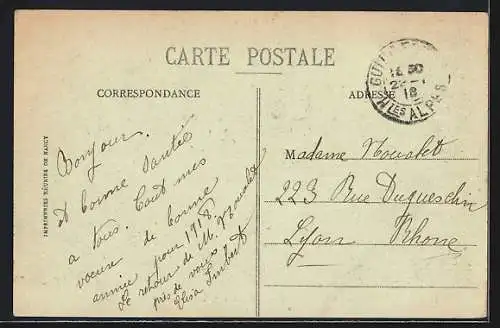 CARTE POSTALE
CORRESPONDANCE
ADRESSE
GUILLESTRE
14 30
2 - 1
18
HTES ALPES
IMPRIMERIES RÉUNIES DE NANCY
Bonjour
et bonne santée
a tous. Tout mes
voeux de bonne
année pour 1918
Le retour de M. Noualet
près de vous
Elisa Imbert
Madame Noualet
223 Rue Duguesclin
Lyon Rhone